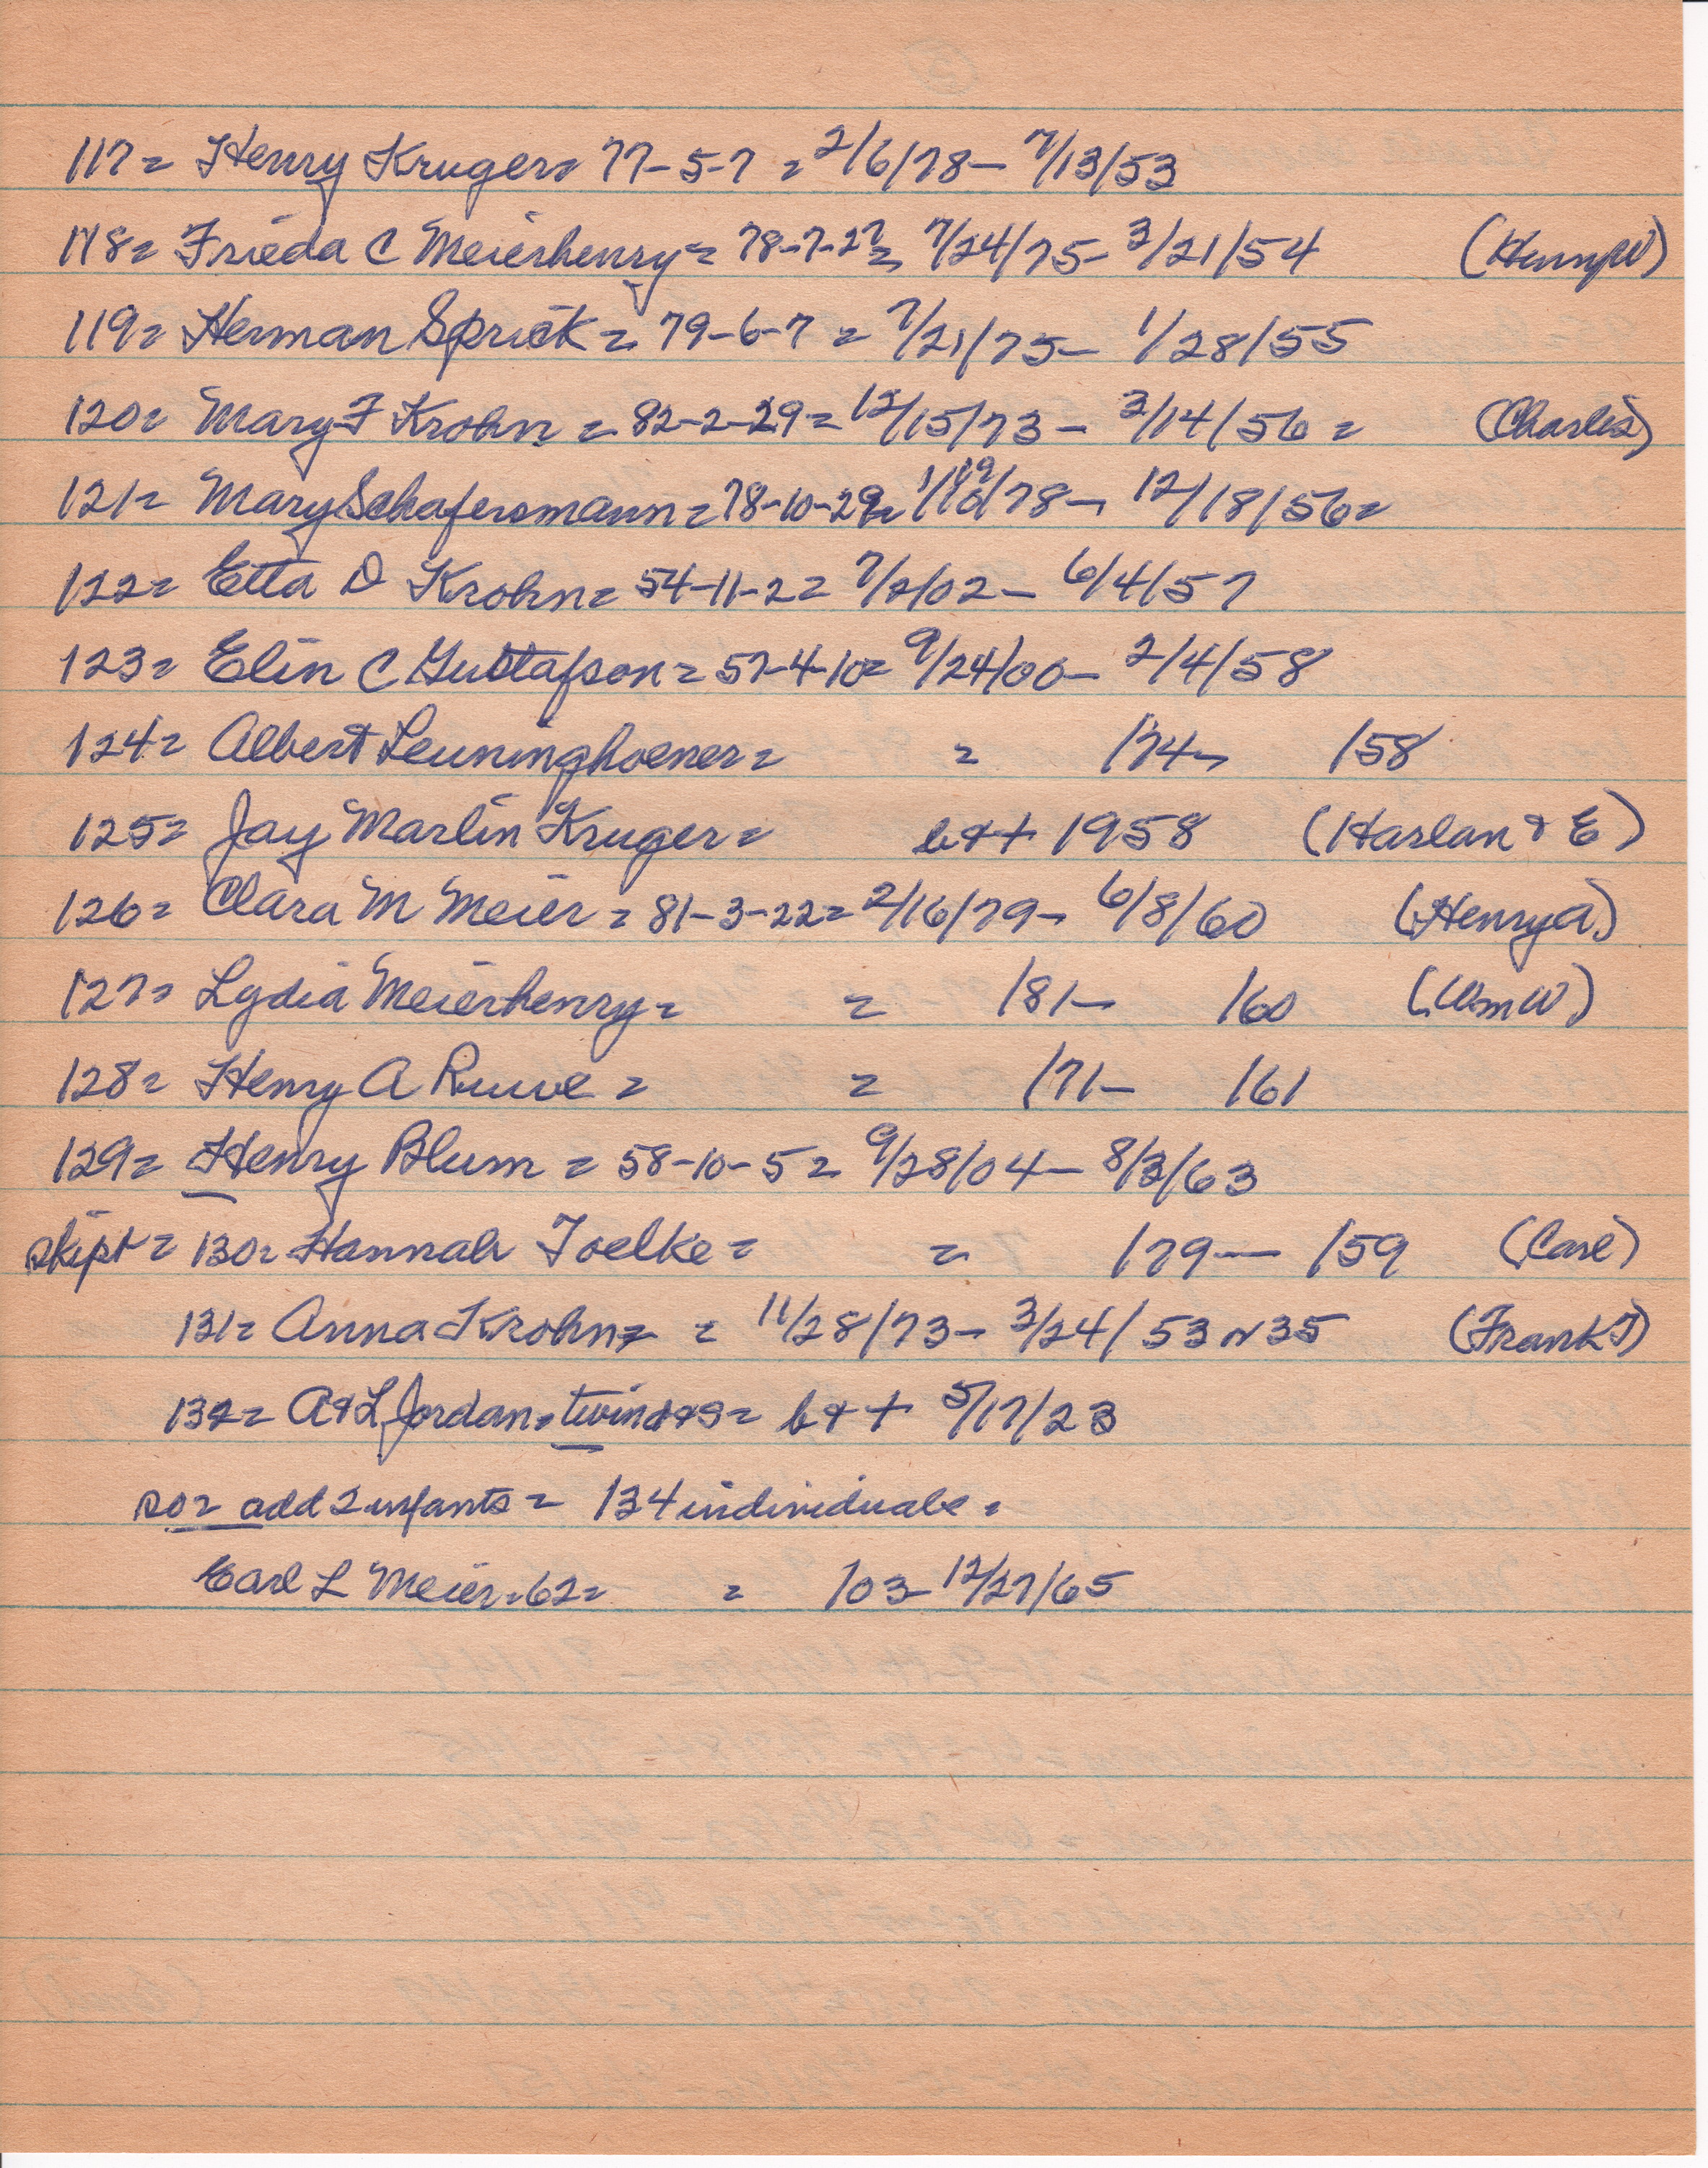 117= Henry Kruger= 77-5-7 = 2/6/78- 7/13/53
118= Frieda C Meierhenry= 78-7-27= 7/24/75- 3/21/54 (Henry W)
119= Herman Sprick= 79-6-7 = 7/21/75- 1/28/55
120= Mary F Krohn = 82-2-29= 12/15/73- 3/14/56 = (Charles)
121= Mary Schafersmann= 78-10-29= 1/19/78- 12/18/56=
122= Etta D Krohn= 54-11-2= 7/2/02- 6/4/57
123= Elin C Gustafson= 57-4-10= 9/24/00- 2/4/58
124= Albert Leuninghoener= = /74- /58
125= Jay Marlin Kruger= b&+ 1958 (Harlan & E)
126= Clara M Meier = 81-3-22= 2/16/79- 6/8/60 (Henry A)
127= Lydia Meierhenry= = /81- /60 (Wm W)
128= Henry A Ruwe = = /71- /61
129= Henry Blum = 58-10-5= 9/28/04- 8/3/63
skipt= 130= Hannah Toelke= = /79- /59 (Carl)
131= Anna Krohn= = 11/28/73- 3/24/53 or 35 (Frank J)
132= A&L Jordan= twin d&s= b&+ 5/17/23
so= add 2 infants= 134 individuals=
Earl L Meier=62= = /03- 12/27/65